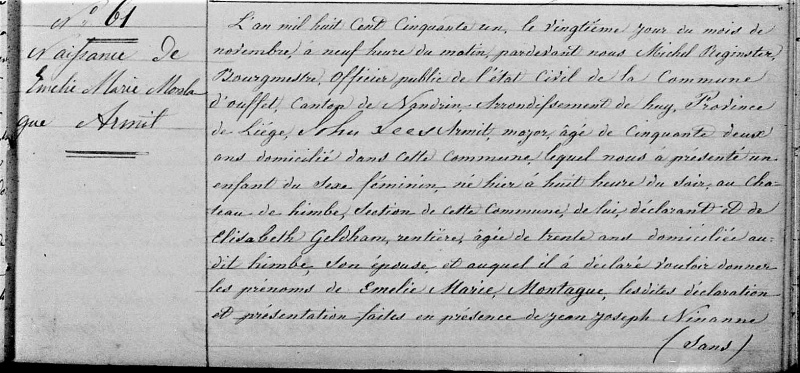 N° 61
Naissance de
Emelie Marie Monta
gue Armit
L'an mil huit Cent Cinquante un, le vingtième jour du mois de
novembre, à neuf heure du matin, pardevant nous Michel Reginster,
Bourgmestre, Officier public de l'état Civil de la Commune
d'ouffet, Canton de Nandrin, Arrondissement de huy, Province
de Liége, John Lees Armit, major, âgé de Cinquante deux
ans domicilié dans cette Commune, lequel nous à présenté un
enfant du sexe féminin, né hier à huit heure du soir, au Cha-
teau de himbe, section de cette Commune, de lui, déclarant et de
Elisabeth Geldham, rentière, âgée de trente ans domiciliée au-
dit himbe, son épouse, et auquel il à déclaré vouloir donner
les prénoms de Emelie Marie, Montague, lesdites déclaration
et présentation faites en présence de jean joseph Ninanne
(Sans)